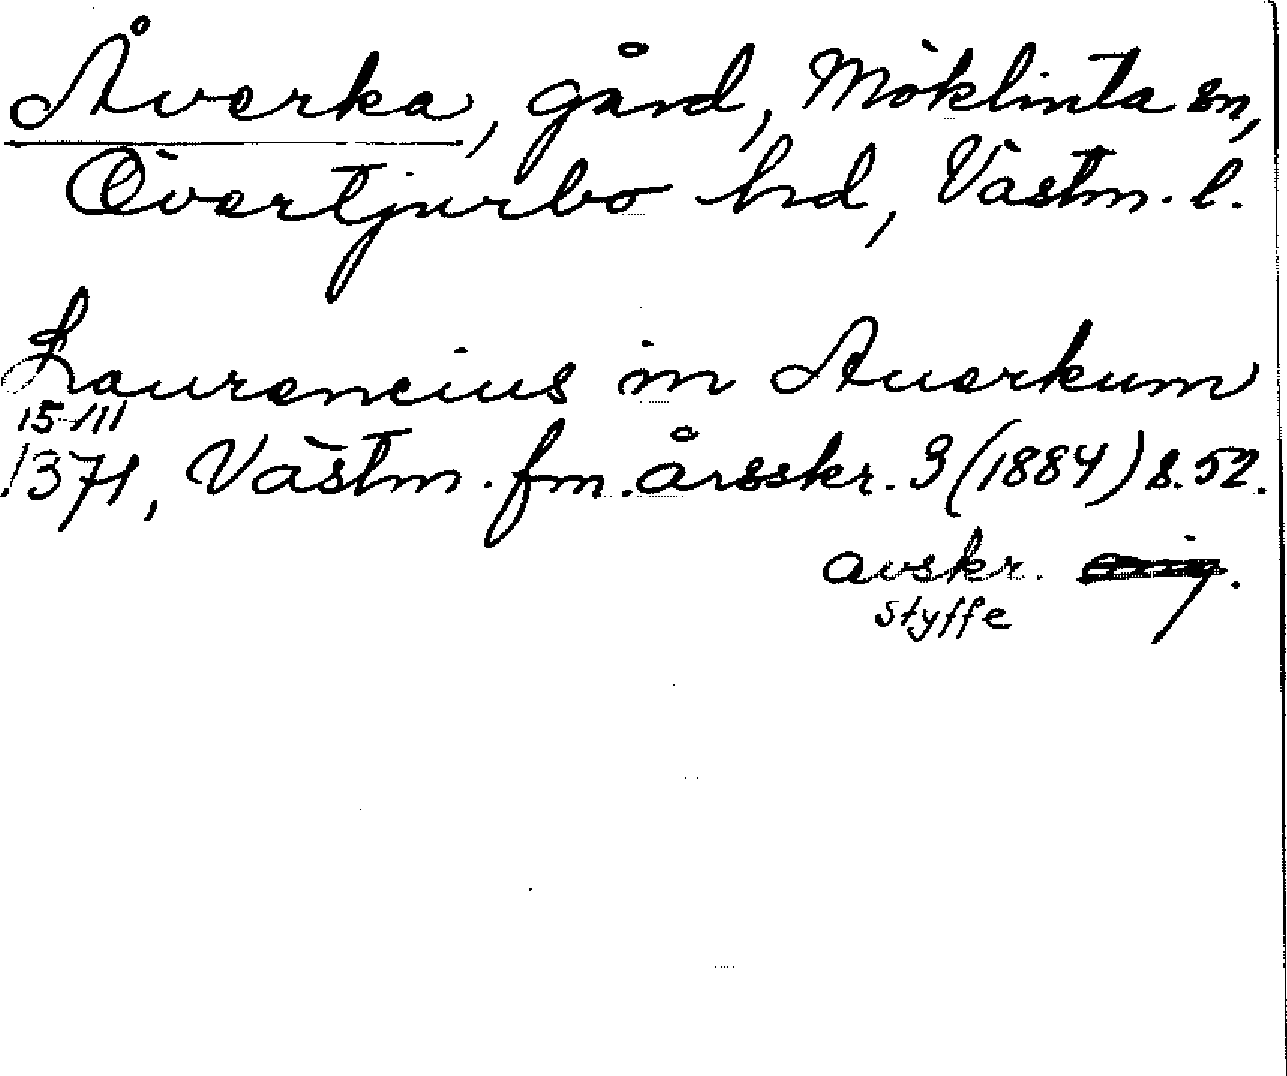 Åverka, gård, Möklinta sn,
Övertjurbo hd, Västm. l.
Laurencius in Auerkum
15/III
1371, Västm. fm. årsskr. 3 (1884) s. 52.
avskr.
Styffe